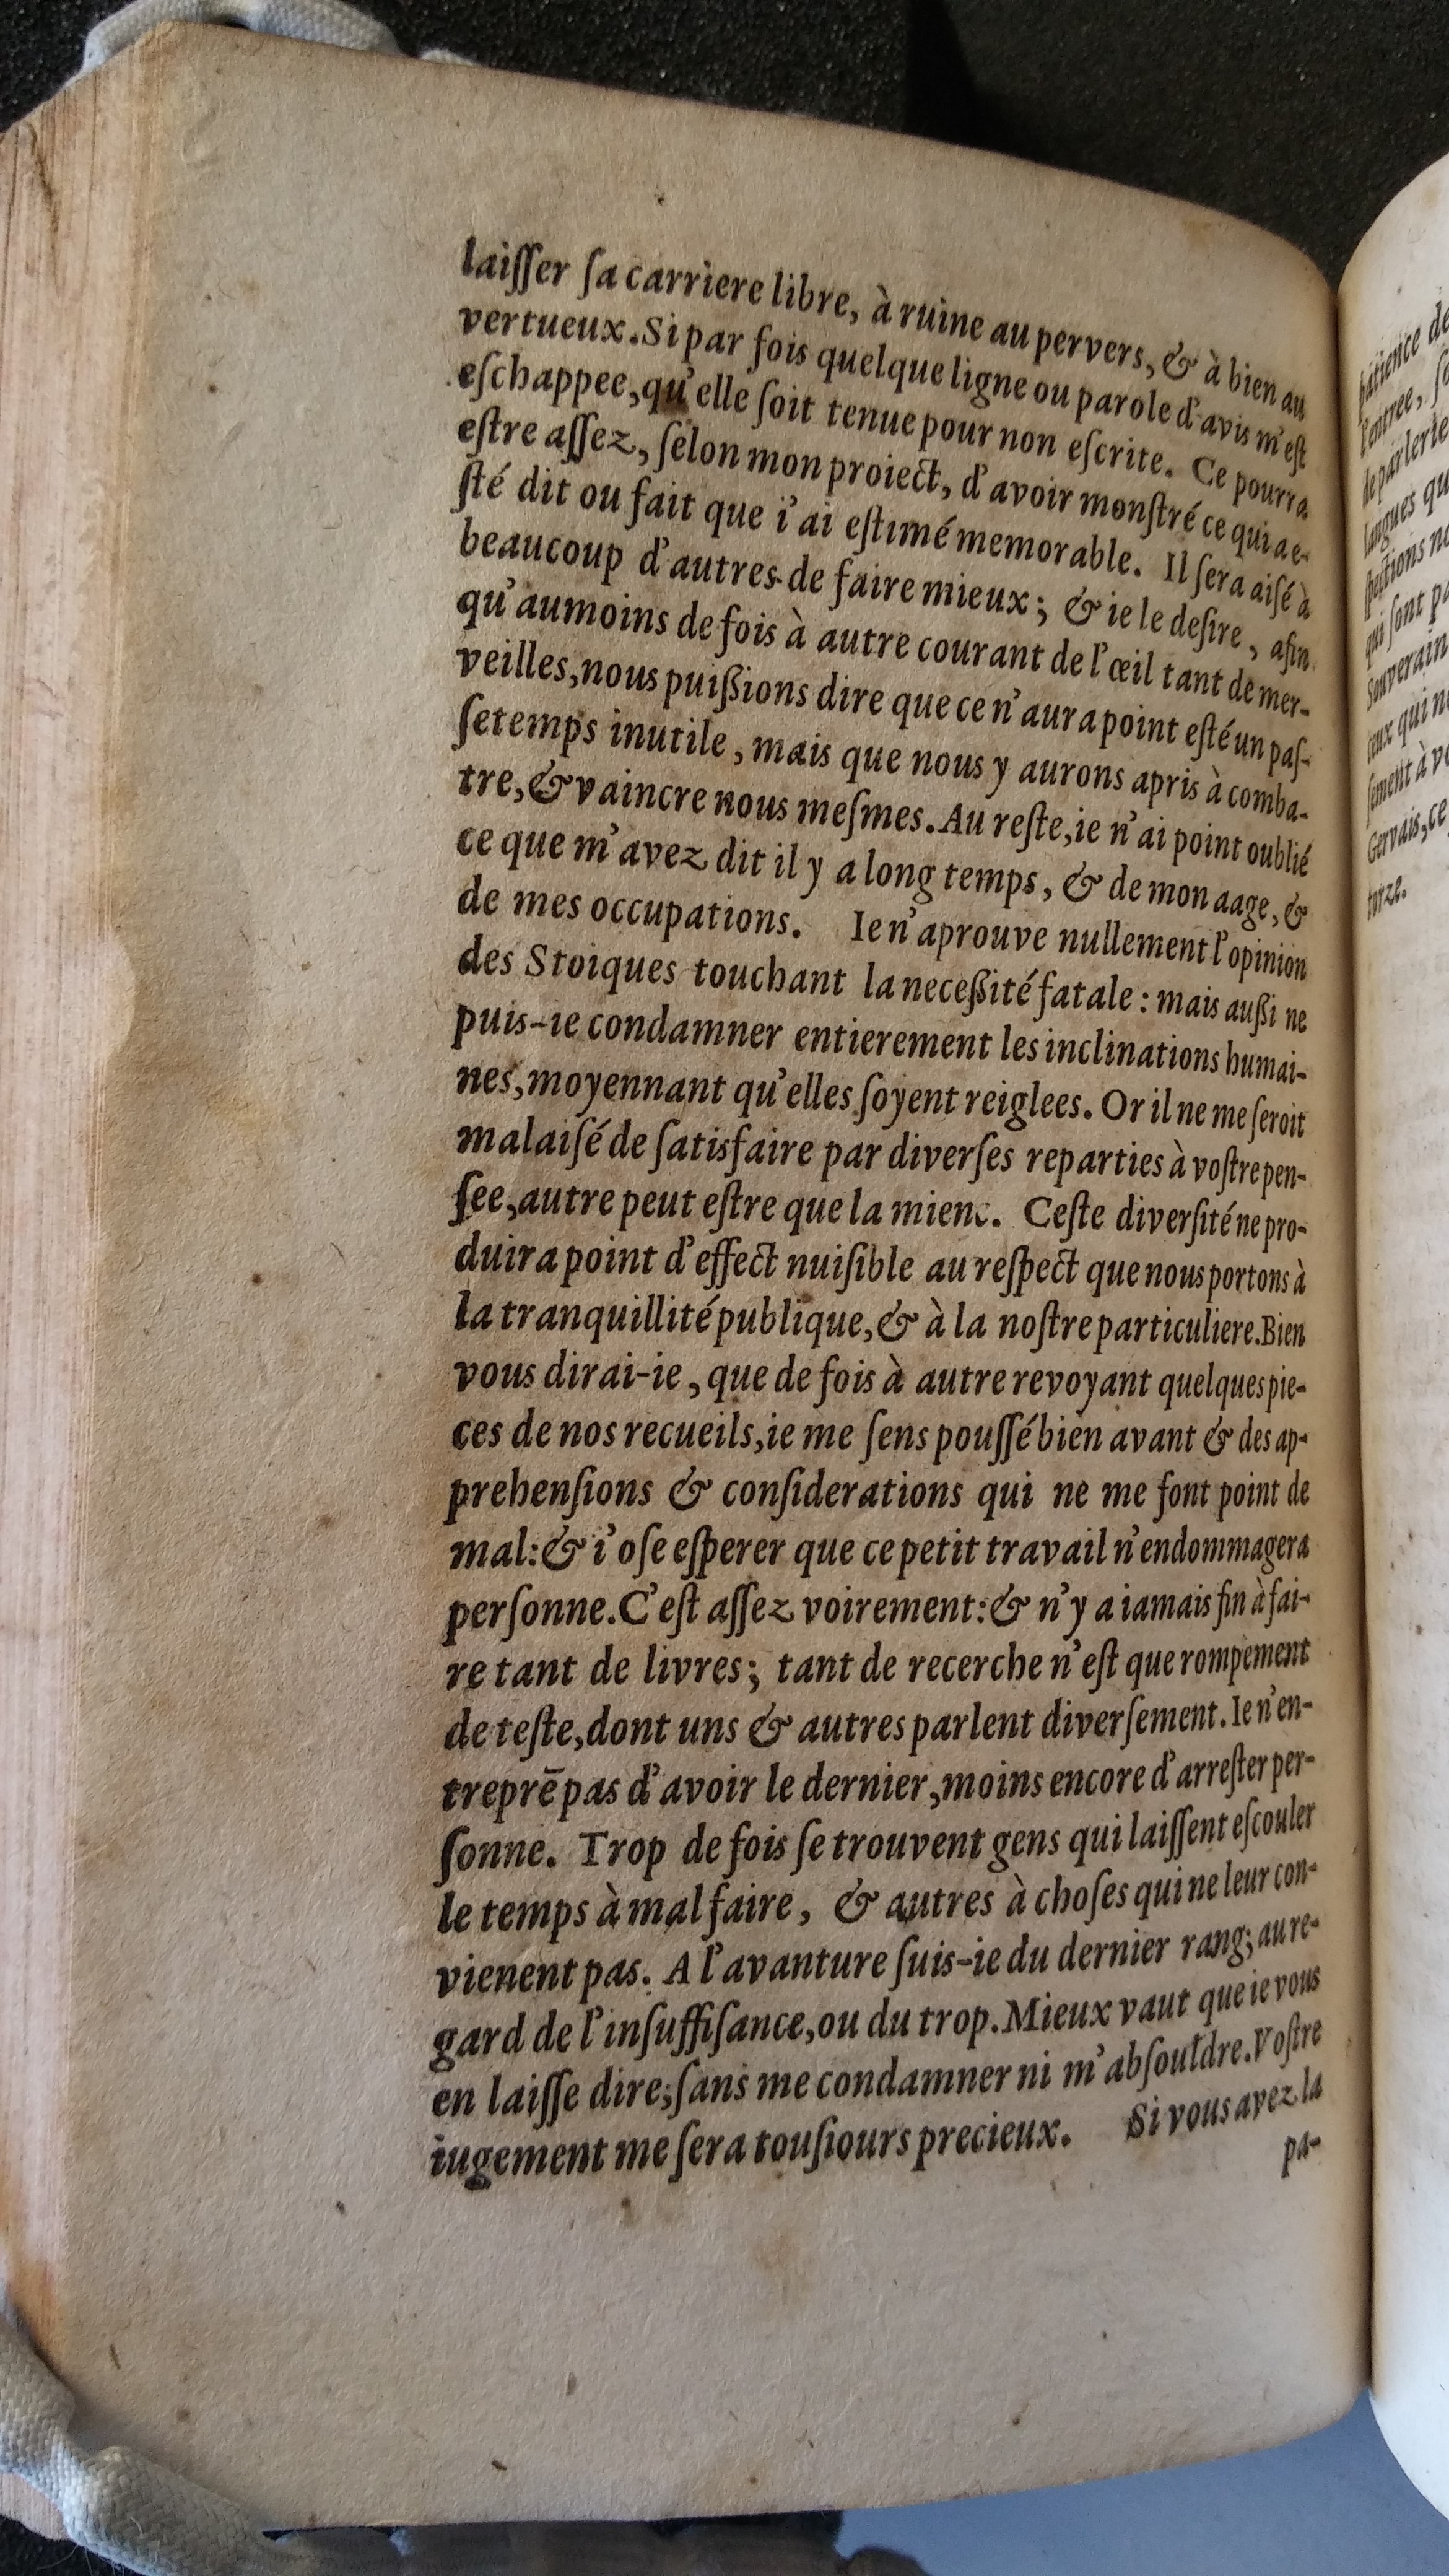 laiſſer ſa carriere libre, à ruine au pervers, & à bien au
vertueux. Si par fois quelque ligne ou parole d'avis m'eſt
eſchappee, qu'elle ſoit tenue pour non eſcrite. Ce pourra
eſtre aſſez, ſelon mon proiect, d'avoir monſtré ce qui a e-
ſté dit ou fait que i'ai eſtimé memorable. Il ſera aiſé à
beaucoup d'autres de faire mieux; & ie le deſire, afin
qu'aumoins de fois à autre courant de l'œil tant de mer-
veilles, nous puißions dire que ce n'aura point eſté un paſ-
ſetemps inutile, mais que nous y aurons apris à comba-
tre, & vaincre nous meſmes. Au reſte, ie n'ai point oublié
ce que m'avez dit il y a long temps, & de mon aage, &
de mes occupations. Ie n'aprouve nullement l'opinion
des Stoiques touchant la neceßité fatale: mais außi ne
puis-ie condamner entierement les inclinations humai-
nes, moyennant qu'elles ſoyent reiglees. Or il ne me ſeroit
malaiſé de ſatisfaire par diverſes reparties à voſtre pen-
ſee, autre peut eſtre que la miene. Ceſte diverſité ne pro-
duira point d'effect nuiſible au reſpect que nous portons à
la tranquillité publique, & à la noſtre particuliere. Bien
vous dirai-ie, que de fois à autre revoyant quelques pie-
ces de nos recueils, ie me ſens pouſſé bien avant & des ap-
prehenſions & conſiderations qui ne me font point de
mal: & i'oſe eſperer que ce petit travail n'endommagera
perſonne. C'eſt aſſez voirement: & n'y a iamais fin à fai-
re tant de livres; tant de recerche n'eſt que rompement
de teſte, dont uns & autres parlent diverſement. Ie n'en-
treprē pas d'avoir le dernier, moins encore d'arreſter per-
ſonne. Trop de fois ſe trouvent gens qui laiſſent eſcouler
le temps à mal faire, & autres à choſes qui ne leur con-
vienent pas. A l'avanture ſuis-ie du dernier rang; au re-
gard de l'inſuffiſance, ou du trop. Mieux vaut que ie vous
en laiſſe dire; ſans me condamner ni m'abſouldre. Voſtre
iugement me ſera touſiours precieux. Si vous avez la
pa-
patience de
l'entree,
de parlerie
langues
qui ſont
Souverain
ſement à
Gervais, ce
torze.